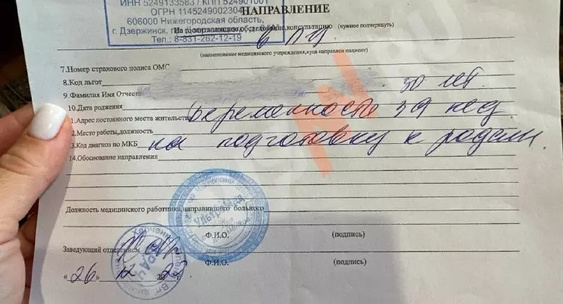 ИНН 5249133583 / КПП 524901001
ОГРН 1145249002304
606000 Нижегородская область,
г. Дзержинск,
Тел.: 8-831-262-12-19
НАПРАВЛЕНИЕ
(нужное подчеркнуть)
(наименование медицинского учреждения, куда направлен пациент)
7.Номер страхового полиса ОМС
8.Код льгот
9.Фамилия Имя Отчество 30 лет
10.Дата рождения
1.Адрес постоянного места жительства Беременность 39 нед
2.Место работы,должность
3.Код диагноз по МКБ на подготовку к родам.
14.Обоснование направления
Должность медицинского работника,направившего больного
Ф.И.О. (подпись)
Заведующий отделением
Ф.И.О. (подпись)
«26» 12 23